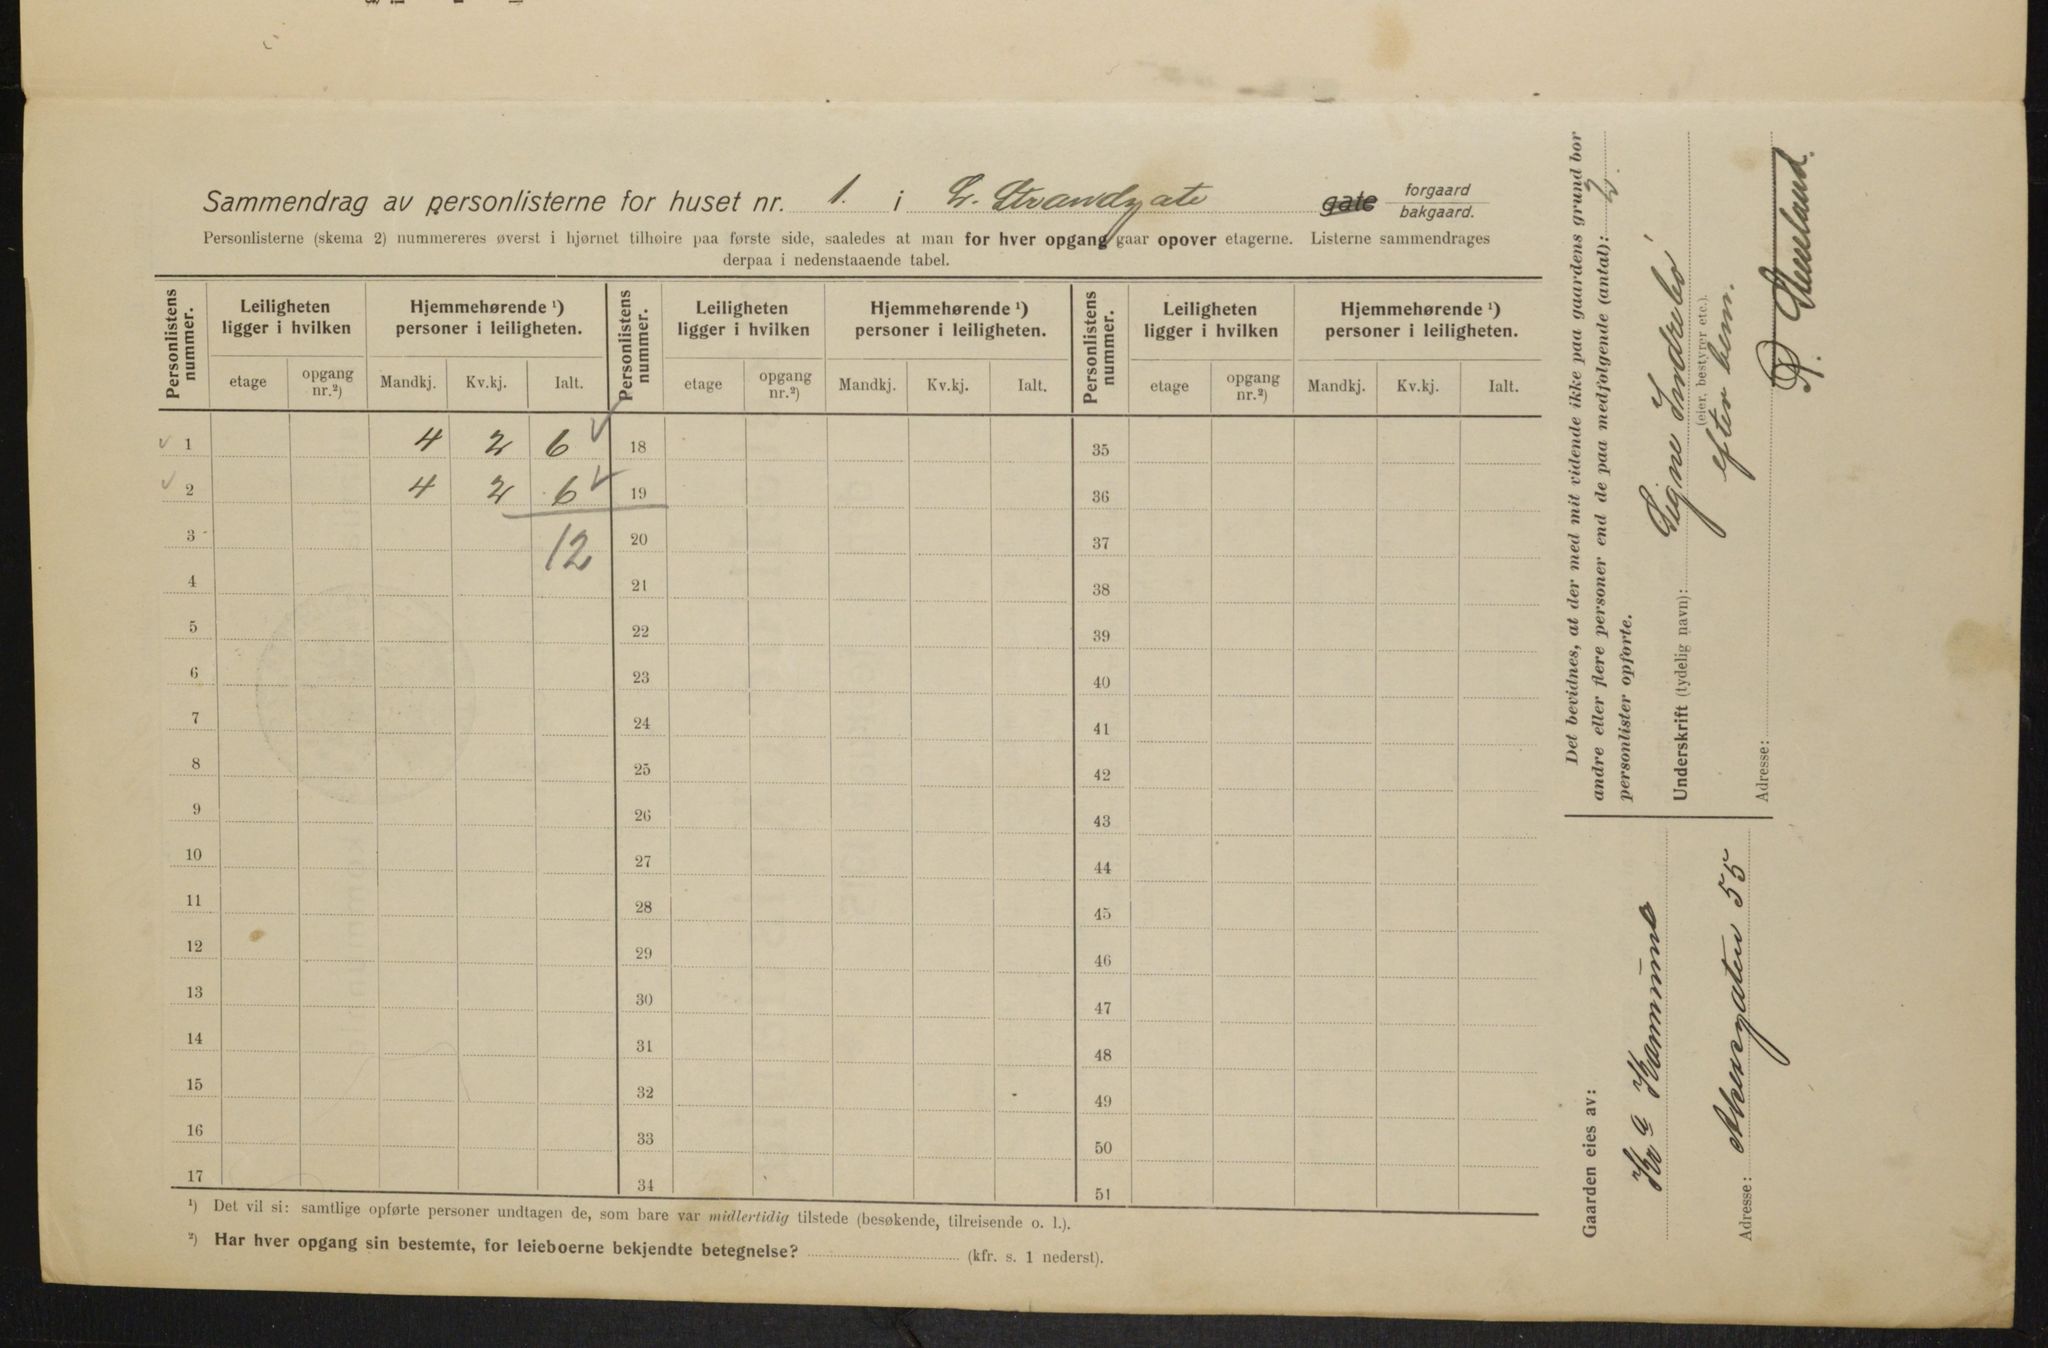 Sammendrag av personlisterne for huset nr. 1. i L. Strandgate gate forgaard
bakgaard.
Personlisterne (skema 2) nummereres øverst i hjørnet tilhøire paa første side, saaledes at man for hver opgang gaar opover etagerne. Listerne sammendrages
derpaa i nedenstaaende tabel.
Personlistens nummer. Leiligheten ligger i hvilken Hjemmehørende ¹) personer i leiligheten. Personlistens nummer. Leiligheten ligger i hvilken Hjemmehørende ¹) personer i leiligheten. Personlistens nummer. Leiligheten ligger i hvilken Hjemmehørende ¹) personer i leiligheten.
etage opgang nr.²) Mandkj. Kv.kj. Ialt. etage opgang nr.²) Mandkj. Kv.kj. Ialt. etage opgang nr.²) Mandkj. Kv.kj. Ialt.
1 4 2 6 18 35
2 4 2 6 19 36
3 12 20 37
4 21 38
5 22 39
6 23 40
7 24 41
8 25 42
9 26 43
10 27 44
11 28 45
12 29 46
13 30 47
14 31 48
15 32 49
16 33 50
17 34 51
¹) Det vil si: samtlige opførte personer undtagen de, som bare var midlertidig tilstede (besøkende, tilreisende o. l.).
²) Har hver opgang sin bestemte, for leieboerne bekjendte betegnelse? (kfr. s. 1 nederst).
Det bevidnes, at der med mit vidende ikke paa gaardens grund bor
andre eller flere personer end de paa medfølgende (antal): 2.
personlister opførte.
Underskrift (tydelig navn): Signe Indrebö
(eier, bestyrer etc.).
efter bem.
Adresse:
Gaarden eies av:
Kr.a Kommune
Adresse: Akersgaten 55